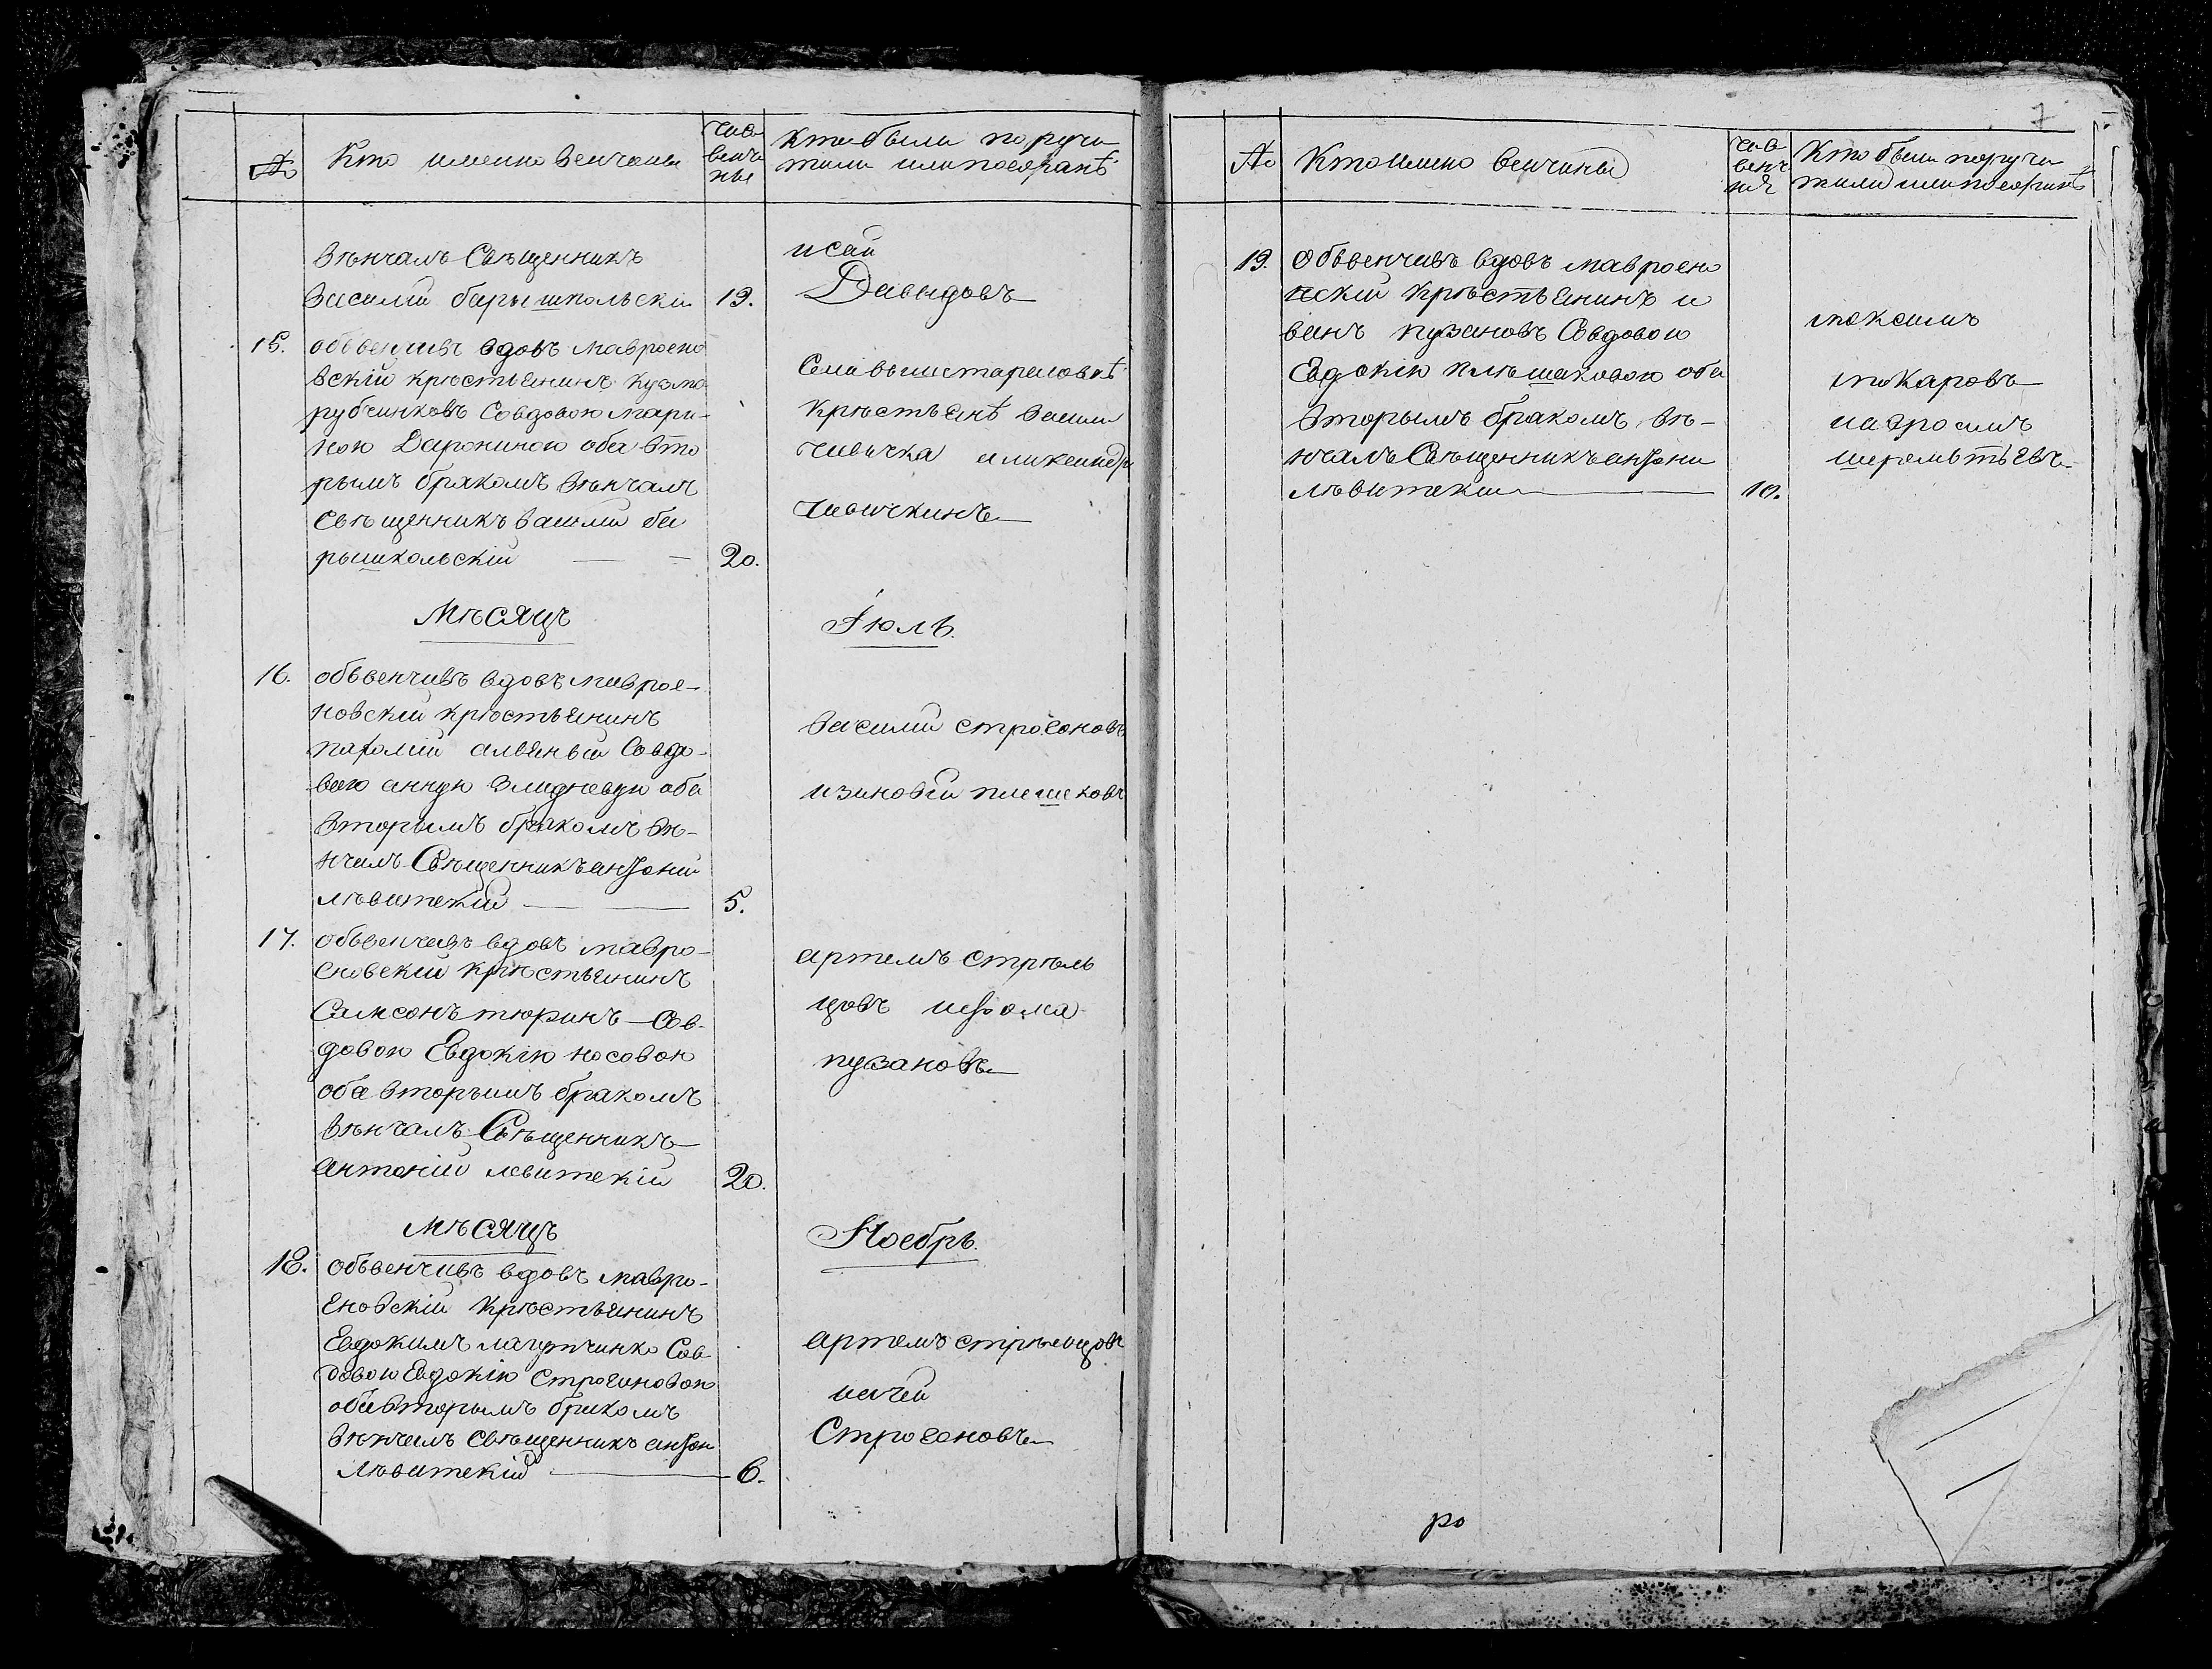 № Кто именно венчаны Число венча нья Кто были поручи тили или поезжанѣ
вѣнчалъ Свѣщенникъ
василии барышпольски 19.
исаи
Давыдовъ
15. объвенчивъ вдовъ мавроено
вскїи крѣстьянинъ кузма
рубчинковъ Совдовою мари-
ною Дарониною оба вто
рымъ бракомъ вѣнчалъ
свѣщенникъ василии ба
рышпольскїи 20.
крѣстьянѣ васили
чивичка
чивичкинъ
Мѣсяцъ Іюль.
16. объвенчивъ вдовъ маврое-
новскїи крѣстьянинъ
Совдо-
вою анную
вторымъ бракомъ вѣ-
нчалъ Свѣщенникъ анѳонии
лѣвитскїй 5.
василии строгоновъ
изиновїи плешковъ
17. объвенчивъ вдовъ мавро-
еновскїи крѣстьянинъ
Самсонъ тюринъ Сов-
довою Евдокїю носовою
оба вторымъ бракомъ
вѣнчалъ Свѣщенникъ
антонїй левитскїй 20.
артемъ стрѣль
цовъ иѳома
пузановъ
мѣсяцъ Ноебрь.
18. объвенчивъ вдовъ мавро-
еновскїи крѣстьянинъ
Евдокимъ лагутчинко Сов
довою Евдокїю строгановою
оба вторымъ бракомъ
вѣнчалъ свѣщенникъ анѳон
лѣвитскїй 6.
артемъ стрѣльцовъ
Строгоновъ
7
№ Кто имено венчаны числ венч ния Кто были поручи тили или поезжанѣ
19. объвенчивъ вдовъ мавроено
вскїи крѣстьянинъ и
ванъ пузановъ Совдовою
Евдокїю плѣшаковою оба
вторымъ бракомъ вѣ-
нчалъ Свѣщенникъ анѳони
лѣвитски 10.
максимъ
токаровъ
шерѣметьевъ
ро